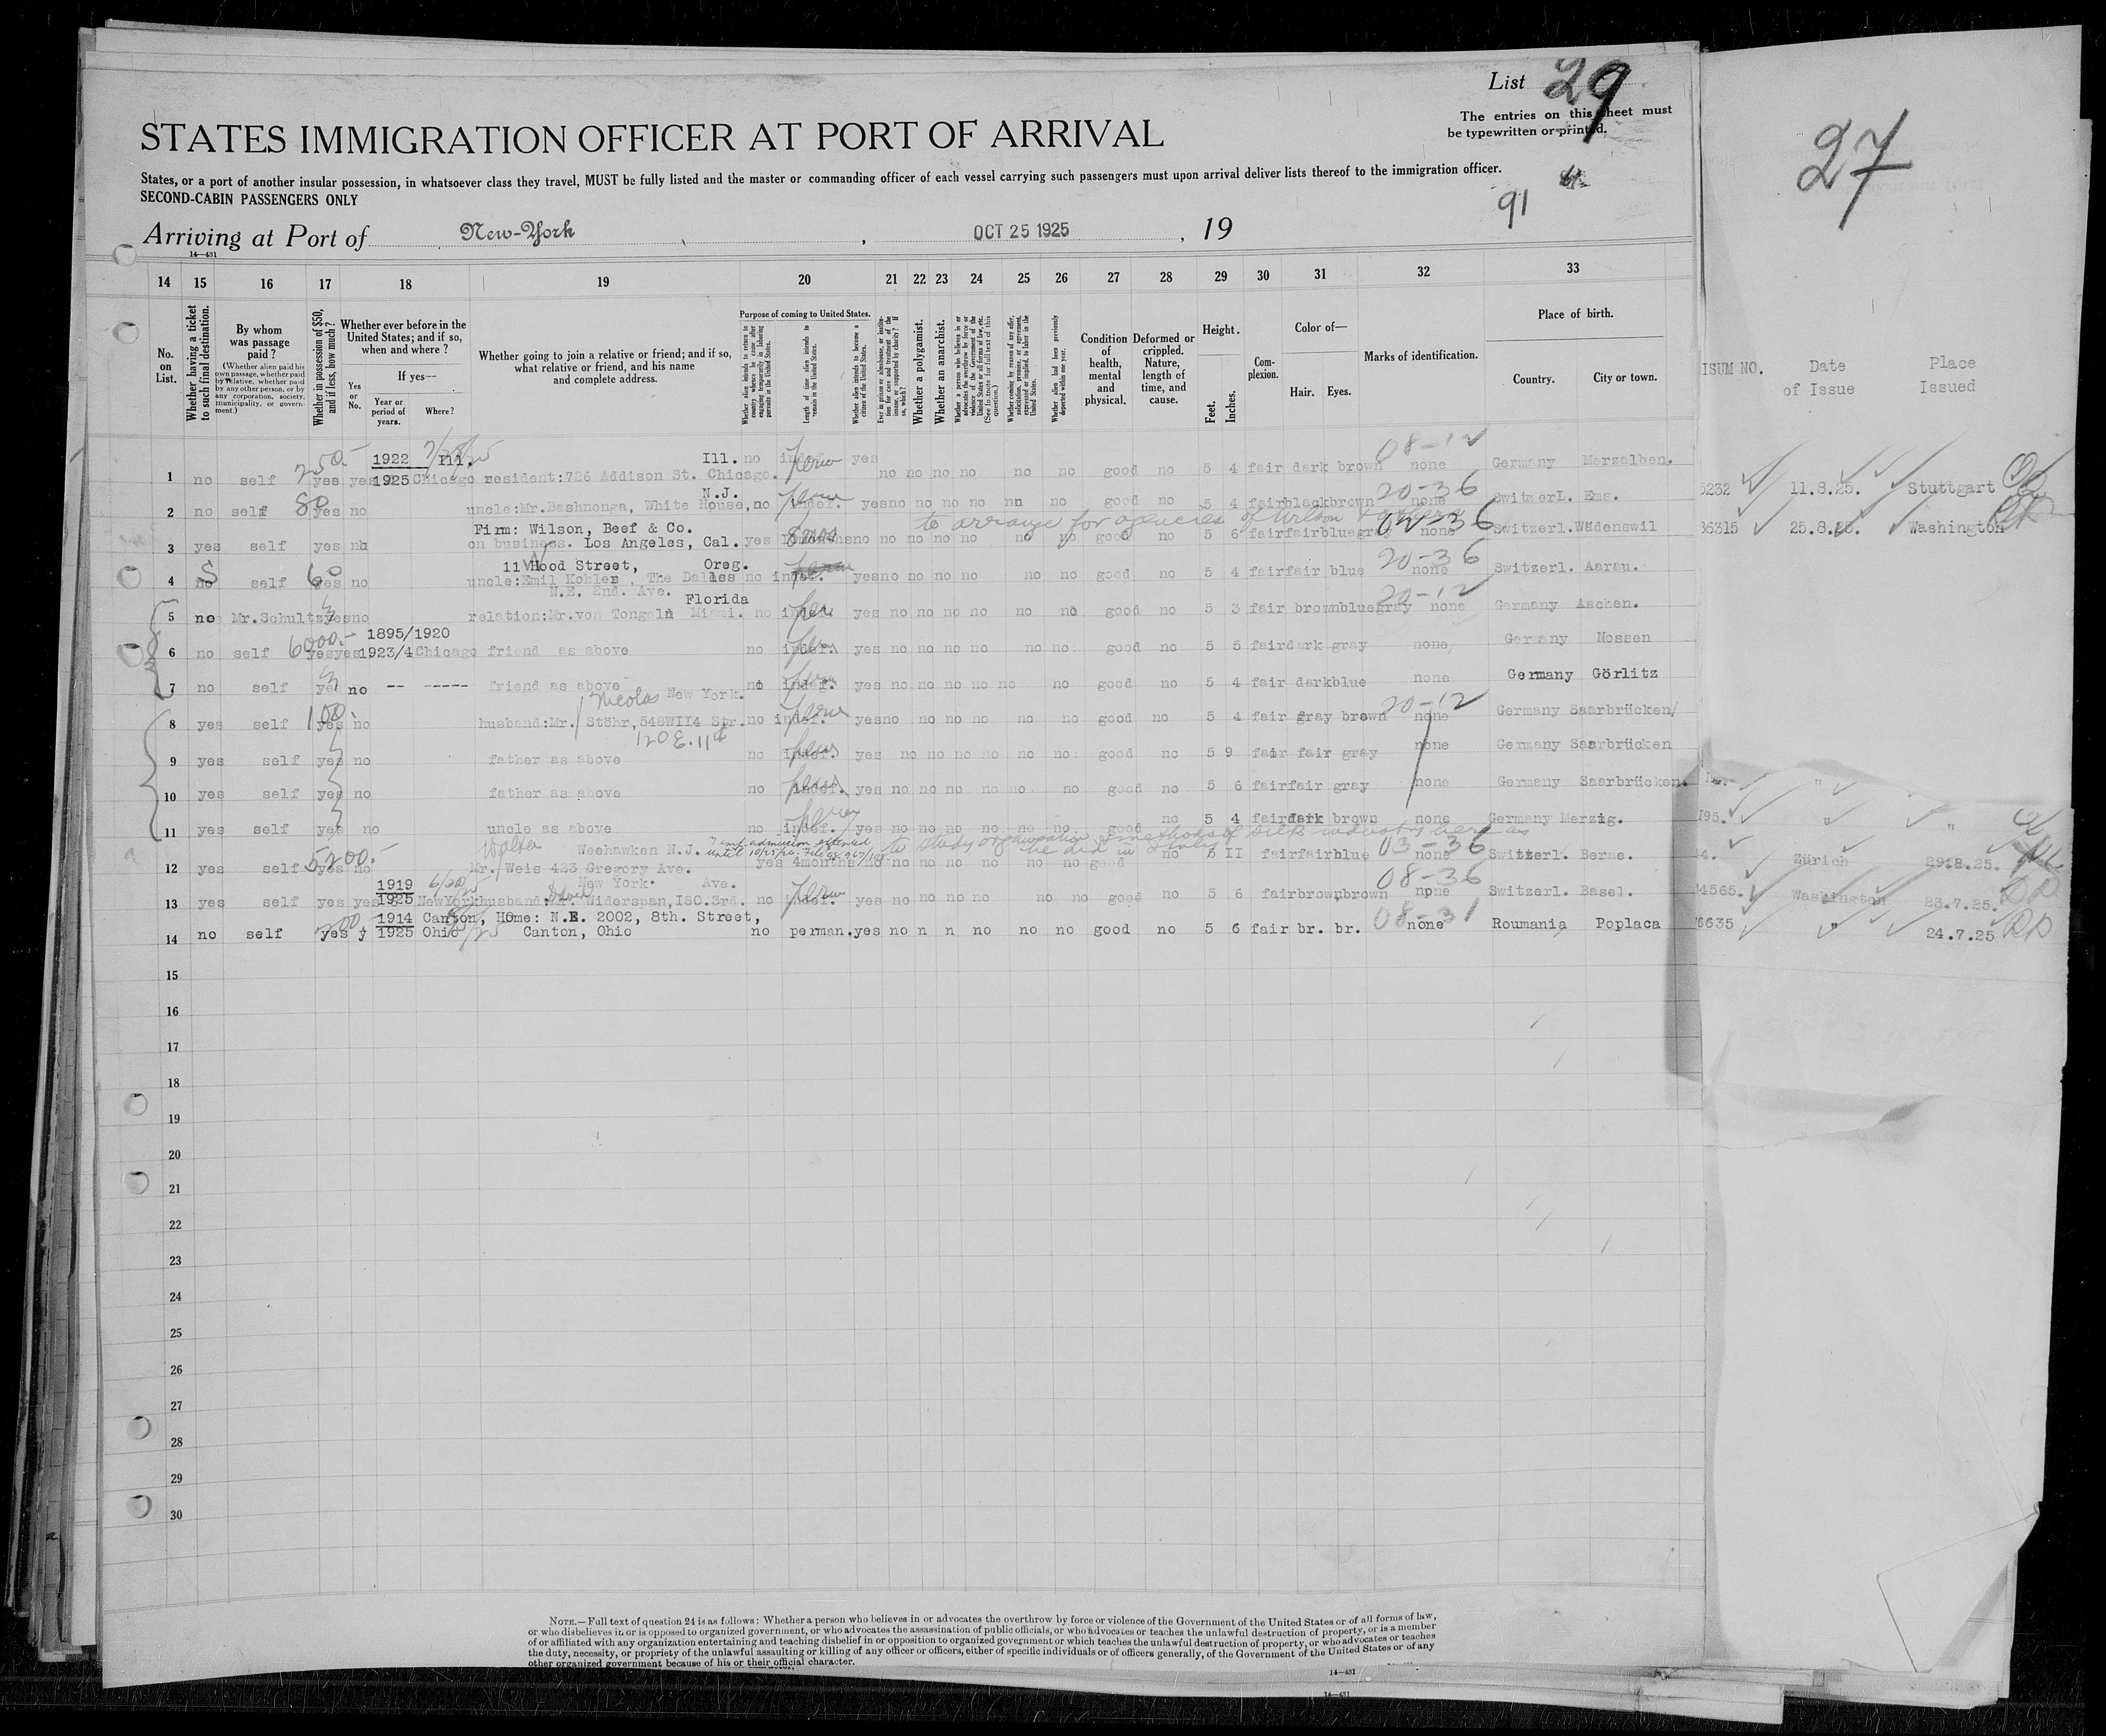 List 29
The entries on this sheet must
be typewritten or printed.
27
STATES IMMIGRATION OFFICER AT PORT OF ARRIVAL
States, or a port of another insular possession, in whatsoever class they travel, MUST be fully listed and the master or commanding officer of each vessel carrying such passengers must upon arrival deliver lists thereof to the immigration officer.
SECOND-CABIN PASSENGERS ONLY
91
Arriving at Port of New-York, OCT 25 1925, 19
14—431
14 15 16 17 18 19 20 21 22 23 24 25 26 27 28 29 30 31 32 33
No. on List.
Whether having a ticket to such final destination.
By whom was passage paid?
(Whether alien paid his own passage, whether paid by relative, whether paid by any other person, or by any corporation, society, municipality, or government.)
Whether in possession of $50, and if less, how much?
Whether ever before in the United States; and if so, when and where?
Yes or No.
If yes—
Year or period of years.
Where?
Whether going to join a relative or friend; and if so, what relative or friend, and his name and complete address.
Purpose of coming to United States.
Whether alien intends to return to country whence he came after engaging temporarily in laboring pursuits in the United States.
Length of time alien intends to remain in the United States.
Whether alien intends to become a citizen of the United States.
Ever in prison or almshouse, or institution for care and treatment of the insane, or supported by charity? If so, which?
Whether a polygamist.
Whether an anarchist.
Whether a person who believes in or advocates the overthrow by force or violence of the Government of the United States or all forms of law, etc. (See footnote for full text of this question.)
Whether coming by reason of any offer, solicitation, promise, or agreement, expressed or implied, to labor in the United States.
Whether alien had been previously deported within one year.
Condition of health, mental and physical.
Deformed or crippled. Nature, length of time, and cause.
Height.
Feet. Inches.
Complexion.
Color of—
Hair. Eyes.
Marks of identification.
Place of birth.
Country. City or town.
ISUM NO. Date of Issue Place Issued
1922 Ill. Ill. 08-12
1 no self 250- yes yes 1925 Chicago resident:726 Addison St. Chicago. no indef. yes no no no no no no good no 5 4 fair dark brown none Germany Merzalben.
N.J. 20-36
2 no self 80 yes no uncle:Mr.Bashnonga, White House, no indef. yes no no no no no no good no 5 4 fair black brown none SwitzerL. Ems. 5232 11.8.25. Stuttgart
Firm: Wilson, Beef & Co. to arrange for agencies of Wilson 02-36
3 yes self yes no on business. Los Angeles, Cal. yes 8 mos no no no no no no no good no 5 6 fair fair blue gray none Switzerl. Wädenswil 36315 25.8.25. Washington
11 Hood Street, Oreg. 20-36
4 no self 60 yes no uncle:Emil Kohler, The Dalles no indef. yes no no no no no no good no 5 4 fair fair blue none Switzerl. Aarau.
N.E. 2nd. Ave. Florida 20-12
5 no Mr.Schultz yes no relation:Mr.von Tongeln Miami. no indef. yes no no no no no no good no 5 3 fair brown blue gray none Germany Aachen.
6000.- 1895/1920
6 no self yes yes 1923/4 Chicago friend as above no indef. yes no no no no no no good no 5 5 fair dark gray none, Germany Nossen
7 no self yes no -- ----- friend as above no indef. yes no no no no no no good no 5 4 fair dark blue none Germany Görlitz
Nicolas New York. 20-12
8 yes self 100. yes no husband:Mr. Stöhr,548WII4 Str. no indef. yes no no no no no no good no 5 4 fair gray brown none Germany Saarbrücken/
120 E. 11th
9 yes self yes no father as above no indef. yes no no no no no no good no 5 9 fair fair gray none Germany Saarbrücken
10 yes self yes no father as above no indef. yes no no no no no no good no 5 6 fair fair gray none Germany Saarbrücken.
11 yes self yes no uncle as above no indef. yes no no no no no no good no 5 4 fair dark brown none Germany Merzig. I95.
Walter Weehawken N.J. Temp. admission extended until 10/25/26. to study organization & methods of silk industry here as he did in Italy 03-36
12 yes self 5200.- yes no Mr. Weis 423 Gregory Ave. yes 4months/no no no no no no no good no 5 II fair fair blue none Switzerl. Berne. 4. Zürich 29.8.25.
1919 New York. Ave. 08-36
13 yes self yes yes 1925 NewYork husband:Mr. Widerspan,I80.3rd. no indef. yes no no no no no no good no 5 6 fair brown,brown none Switzerl. Basel. 4565. Washington 23.7.25.
1914 Canton, Home: N.E. 2002, 8th. Street, 08-31
14 no self yes y 1925 Ohio Canton, Ohio no perman. yes no n n no no no good no 5 6 fair br. br. none Roumania Poplaca 6635 " 24.7.25
15
16
17
18
19
20
21
22
23
24
25
26
27
28
29
30
NOTE.—Full text of question 24 is as follows: Whether a person who believes in or advocates the overthrow by force or violence of the Government of the United States or of all forms of law,
or who disbelieves in or is opposed to organized government, or who advocates the assassination of public officials, or who advocates or teaches the unlawful destruction of property, or is a member
of or affiliated with any organization entertaining and teaching disbelief in or opposition to organized government or which teaches the unlawful destruction of property, or who advocates or teaches
the duty, necessity, or propriety of the unlawful assaulting or killing of any officer or officers, either of specific individuals or of officers generally, of the Government of the United States or of any
other organized government because of his or their official character.
14—431
14—431